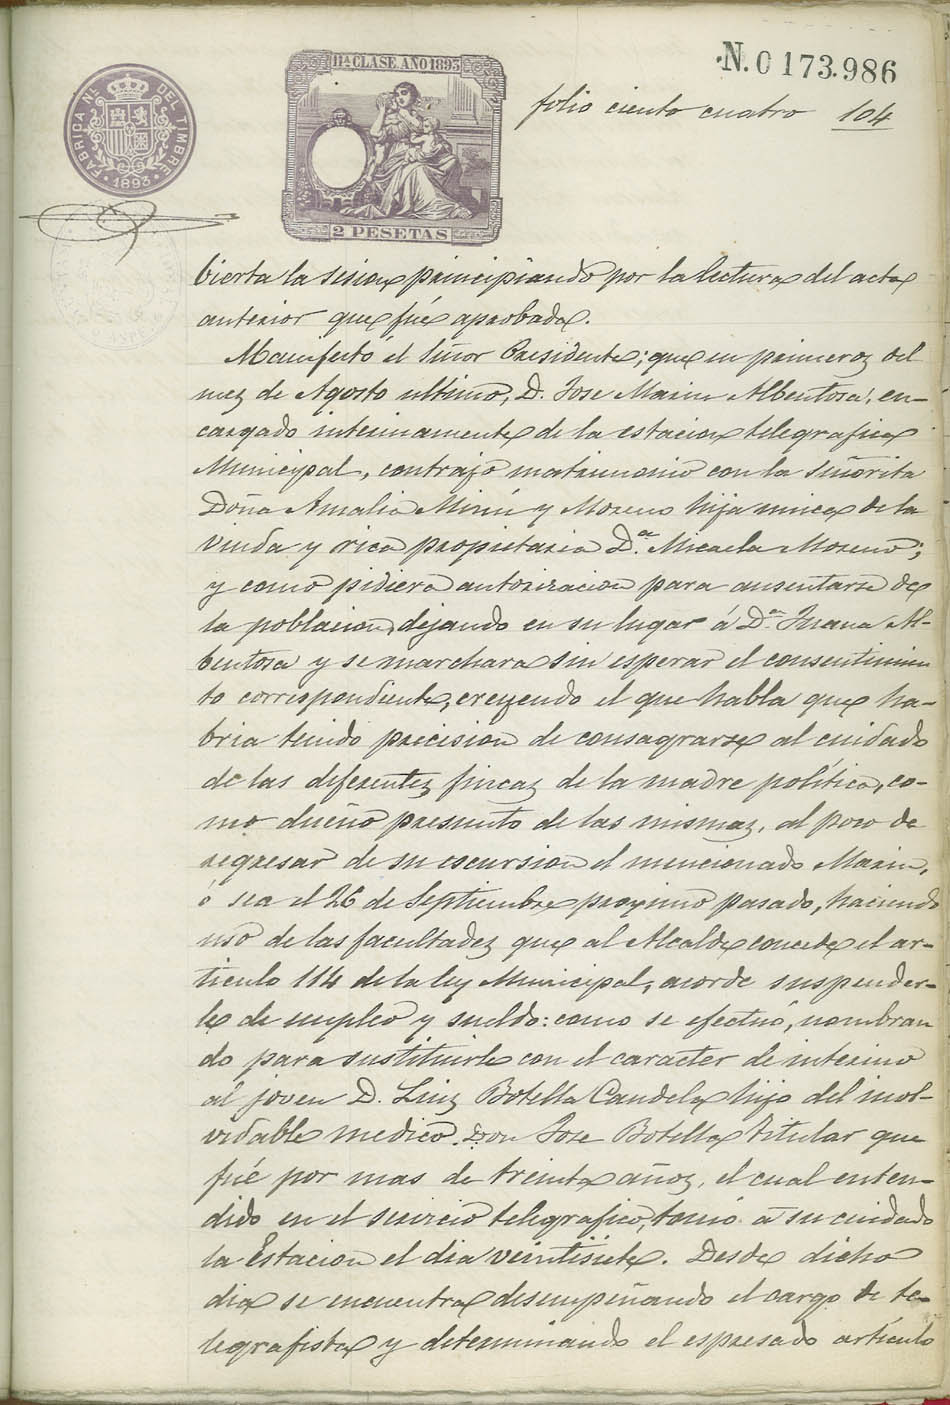 N.0173.986
11ª CLASE. AÑO 1893
FABRICA Nᴸ DEL TIMBRE
1893
2 PESETAS
folio ciento cuatro 104
bierta la sesion principiando por la lectura del acta
anterior que fué aprobada.
Manifestó el Señor Presidente; que en primeroz del
mez de Agosto ultimo, D. Jose Marin Albentosa, en-
cargado interinamente de la estacion telegrafica
Municipal, contrajo matrimonio con la Señorita
Doña Amalia Mirú y Moreno hija unica de la
viuda y rica propietaria D.ª Micaela Moreno;
y como pidiera autorizacion para ausentarse de
la poblacion, dejando en su lugar á D.ª Juana Al-
bentosa y se marchara sin esperar el consentimien
to correspondiente, creyendo el que habla que ha-
bria tenido precision de consagrarse al cuidado
de las diferentez fincaz de la madre política, co-
mo dueño presunto de las mismaz, al poco de
regresar de su escursion el mencionado Marin,
ó sea el 26 de Septiembre proximo pasado, haciendo
uso de las facultadez que al Alcalde concede el ar-
ticulo 114 de la ley Municipal, acorde suspender-
le de empleo y sueldo: como se efectuó, nombran
do para sustituirle con el caracter de interino
al joven D. Luiz Botella Candela hijo del inol-
vidable medico Don Jose Botella, titular que
fué por mas de treinta añoz, el cual enten-
dido en el servicio telegrafico, tomó á su cuidado
la Estacion el dia veintisiete. Desde dicho
dia se encuentra desempeñando el cargo de te-
legrafista y determinando el espresado artículo